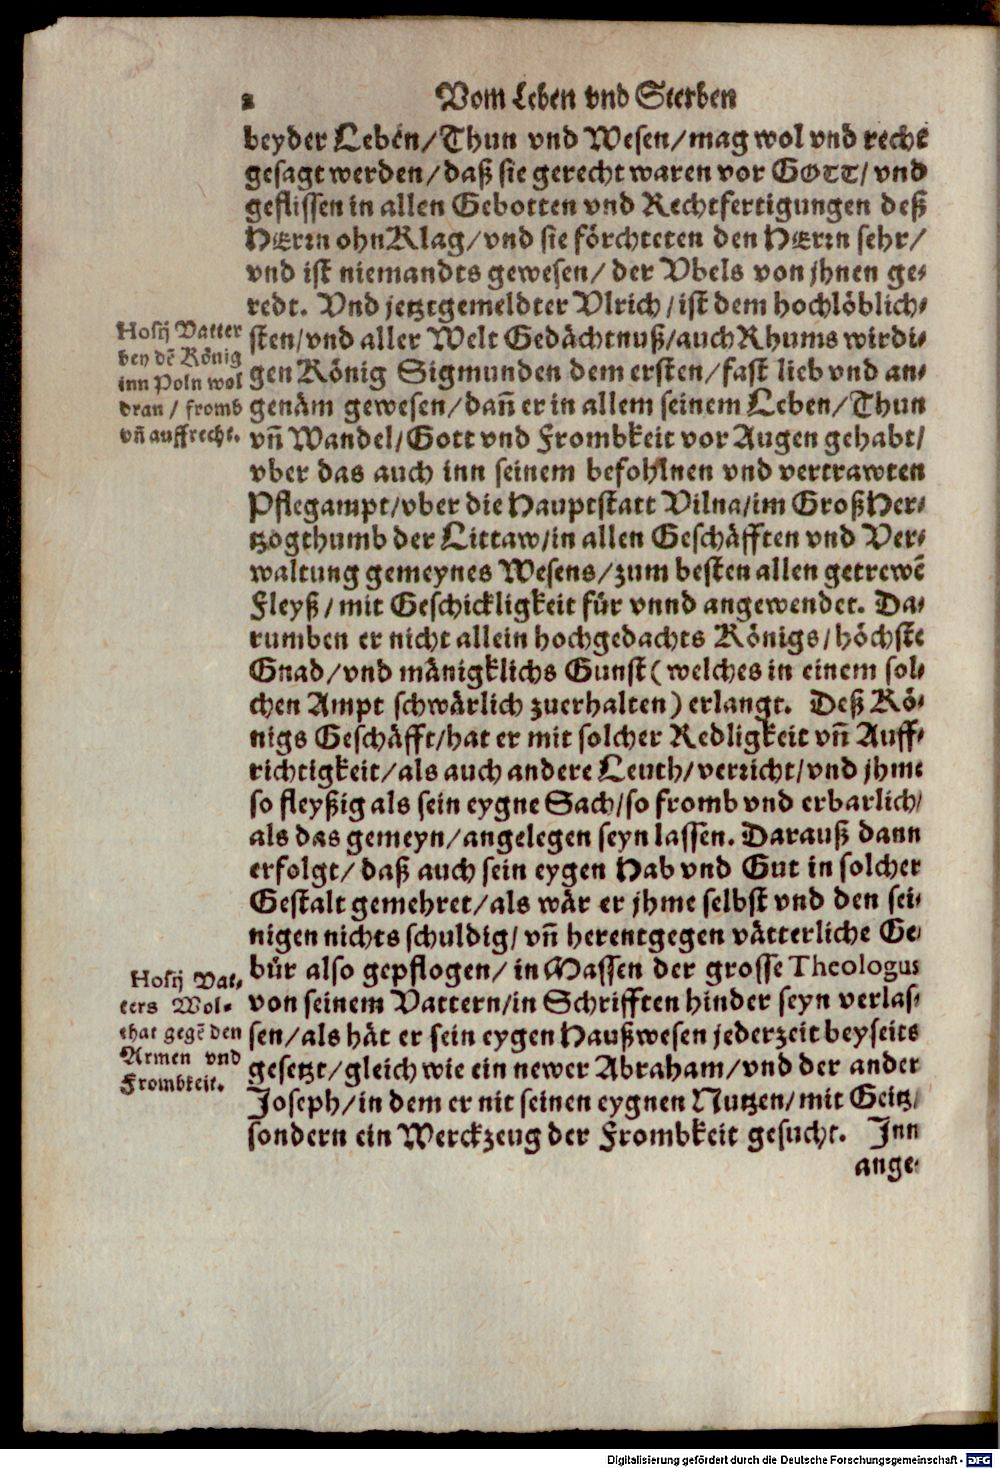 2 Vom Leben vnd Sterben
beyder Leben/Thun vnd Wesen/mag wol vnd recht
gesagt werden/daß sie gerecht waren vor GOTT/vnd
geflissen in allen Gebotten vnd Rechtfertigungen deß
HErrn ohn Klag/vnd sie förchteten den HErrn sehr/
vnd ist niemandts gewesen/der Vbels von jhnen ge-
redt. Vnd jetztgemeldter Vlrich/ist dem hochlöblich-
sten/vnd aller Welt Gedächtnuß/auch Rhums wirdi-
gen König Sigmunden dem ersten/fast lieb vnd an-
genäm gewesen/dañ er in allem seinem Leben/Thun
vñ Wandel/Gott vnd Frombkeit vor Augen gehabt/
vber das auch inn seinem befohlnen vnd vertrawten
Pflegampt/vber die Hauptstatt Vilna/im Groß Her-
tzogthumb der Littaw/in allen Geschäfften vnd Ver-
waltung gemeynes Wesens/zum besten allen getrewẽ
Fleyß/mit Geschickligkeit für vnnd angewendet. Da-
rumben er nicht allein hochgedachts Königs/höchste
Gnad/vnd mänigklichs Gunst (welches in einem sol-
chen Ampt schwärlich zuerhalten) erlangt. Deß Kö-
nigs Geschäfft/hat er mit solcher Redligkeit vñ Auff-
richtigkeit/als auch andere Leuth/verricht/vnd jhme
so fleyßig als sein eygne Sach/so fromb vnd erbarlich/
als das gemeyn/angelegen seyn lassen. Darauß dann
erfolgt/daß auch sein eygen Hab vnd Gut in solcher
Gestalt gemehret/als wär er jhme selbst vnd den sei-
nigen nichts schuldig/vñ herentgegen vätterliche Ge-
bůr also gepflogen/in Massen der grosse Theologus
von seinem Vattern/in Schrifften hinder seyn verlas-
sen/als hät er sein eygen Haußwesen jederzeit beyseits
gesetzt/gleich wie ein newer Abraham/vnd der ander
Joseph/in dem er nit seinen eygnen Nutzen/mit Geitz/
sondern ein Werckzeug der Frombkeit gesucht. Inn
ange-
Hosij Vatter
bey dẽ König
inn Poln wol
dran/fromb
vñ auffrecht.
Hosij Vat-
ters Wol-
that gegẽ den
Armen vnd
Frombkeit.
Digitalisierung gefördert durch die Deutsche Forschungsgemeinschaft - DFG